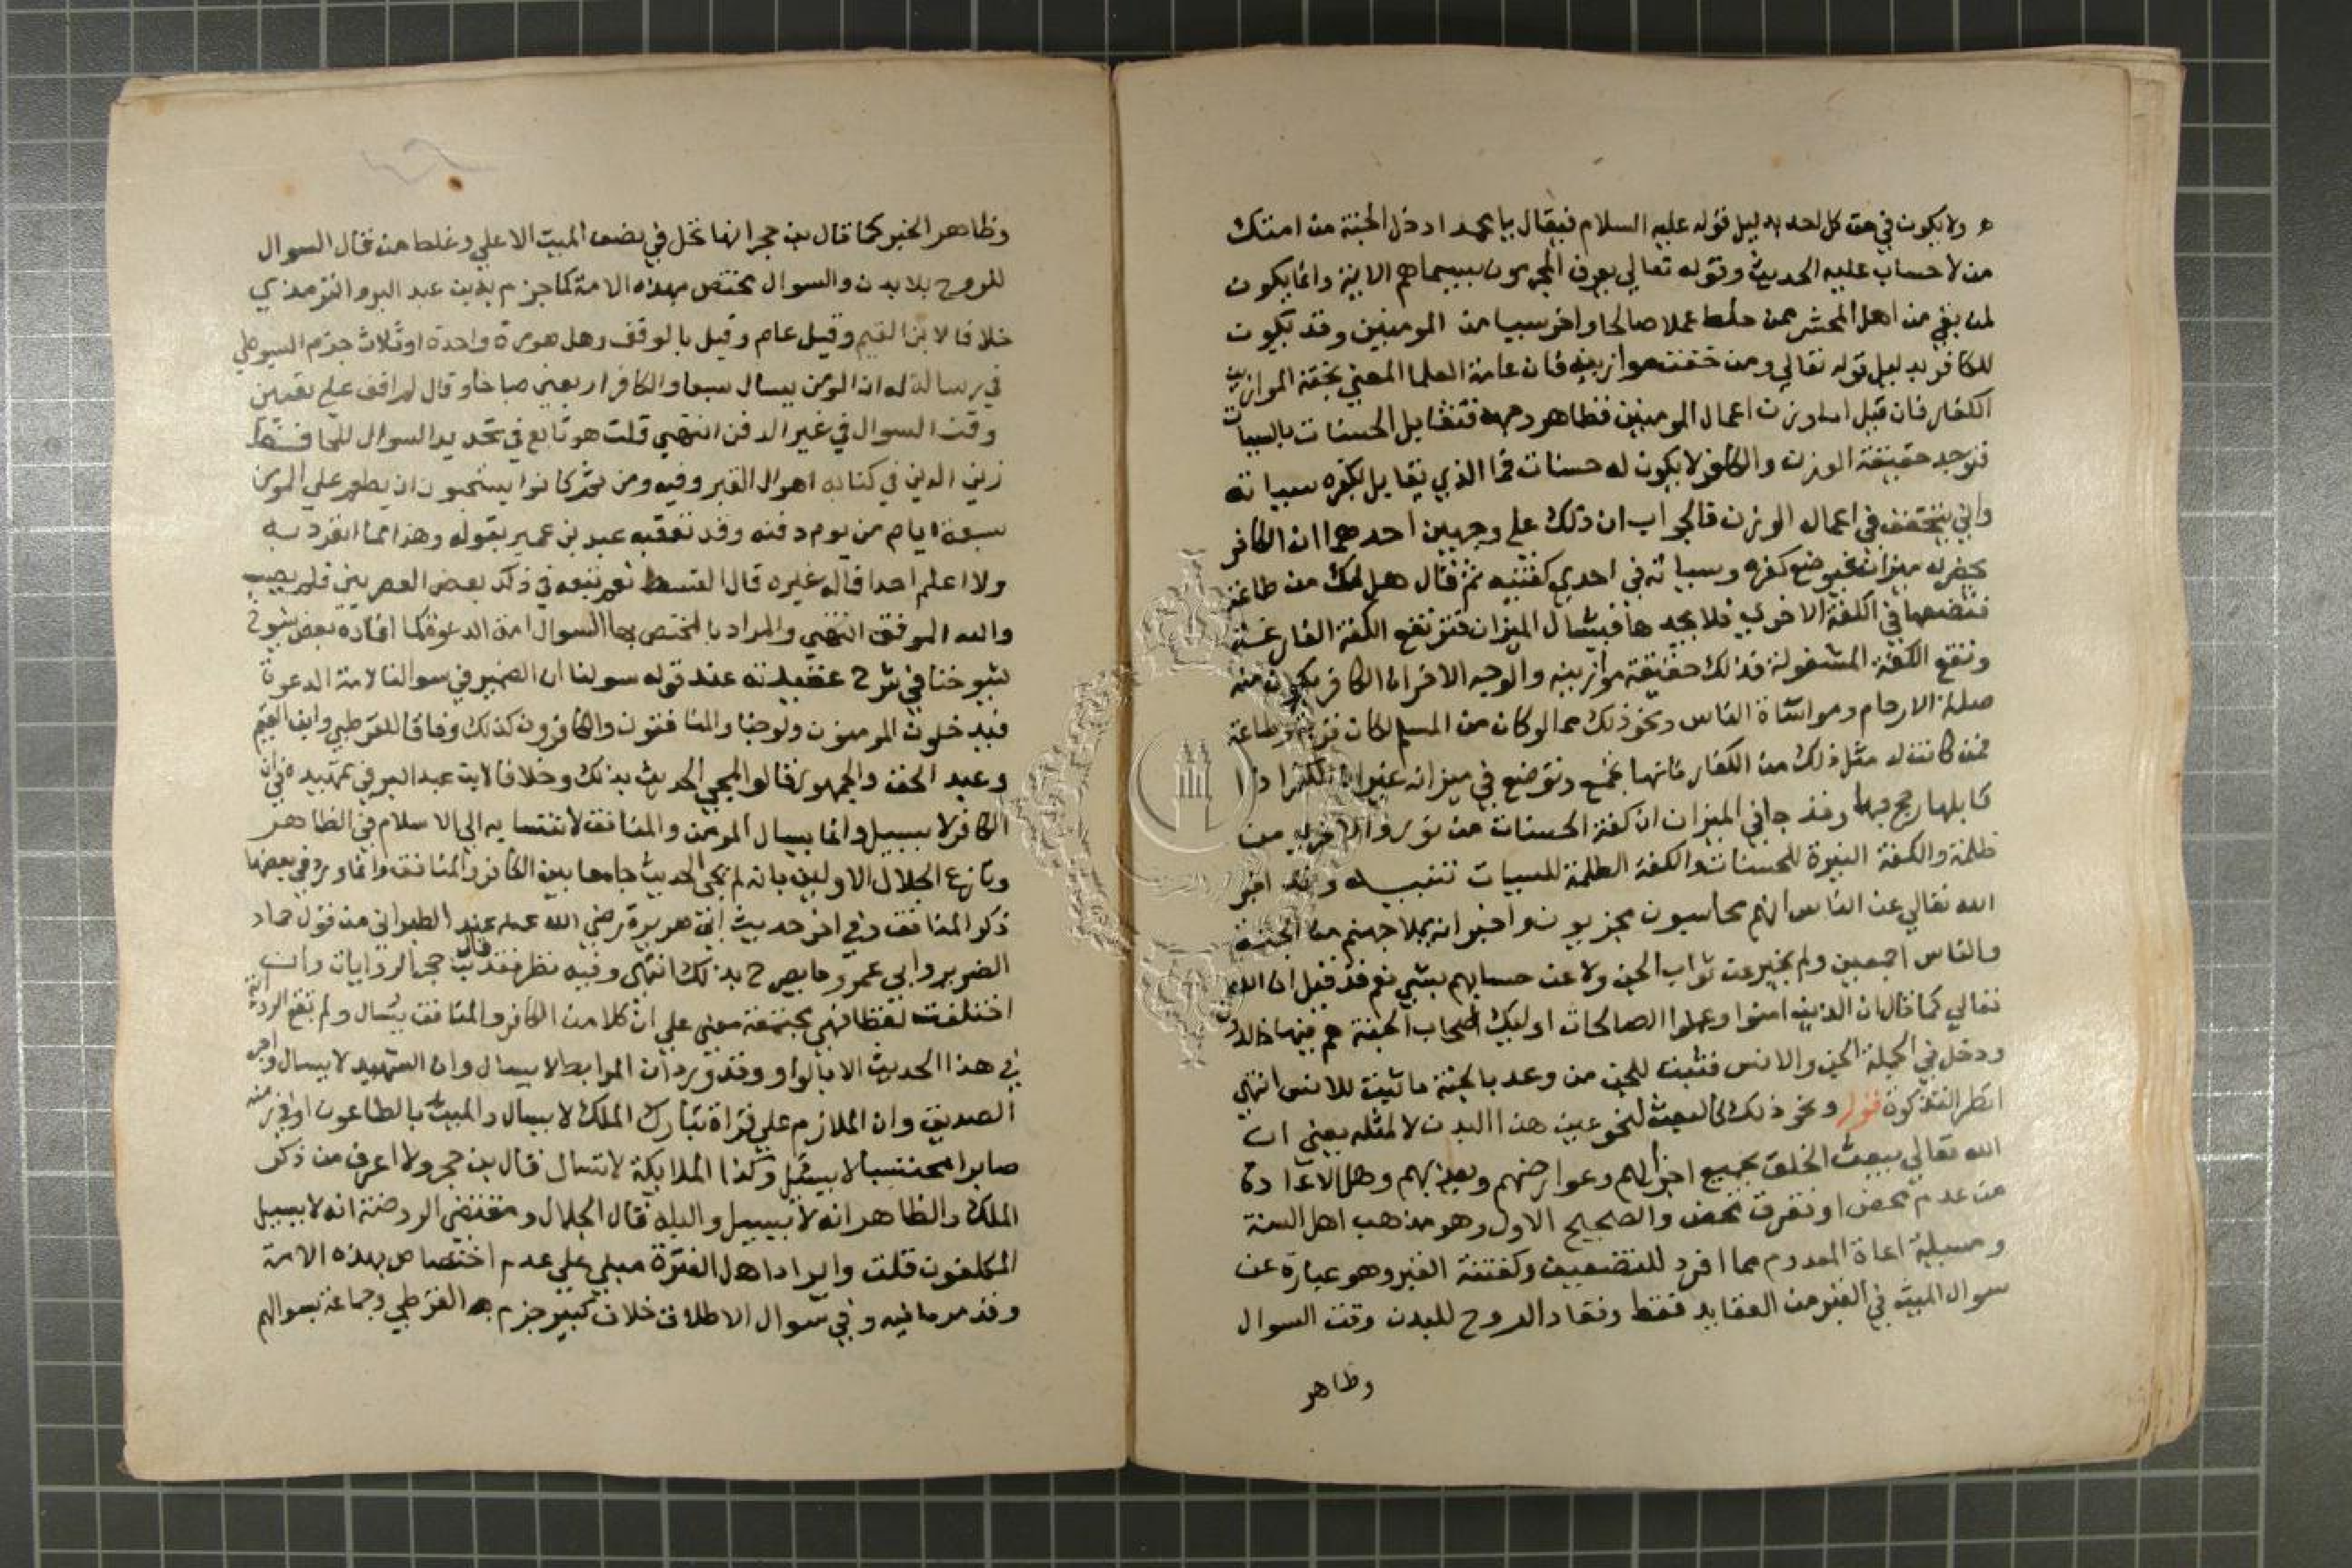 ولا يكون في حق كل احد بدليل قوله عليه السلام فيقال يا محمد ادخل الجنة من امتك
من لا حساب عليه الحديث وقوله تعالي يعرف المجرمون بسيماهم الاية وانما يكون
لمن بقي من اهل المحشر ممن خلط عملا صالحا واخر سيا من المومنين وقد يكون
للكافر بدليل قوله تعالي ومن خفت موازينه فان عامة العلما المعني بخفة الموازين
الكفار فان قيل اما وزن اعمال المومنين فظاهر وجهه فتقابل الحسنات بالسيات
فتوجد حقيقة الوزن والكافر لا يكون له حسنات فما الذي تقابل بكفره سياته
واني يتحقق في اعماله الوزن فالجواب ان ذلك علي وجهين احدهما ان الكافر
يحضر له ميزان فيوضع كفره وسياته في احدي كفتيه ثم قال هل لك من طاعة
فتضعها في الكفة الاخري فلا يجدها فيشال الميزان فترتفع الكفة الفارغة
وتقع الكفة المشغولة فذلك حقيقة موازينه والوجه الاخر ان الكافر يكون منه
صلة الارحام ومواساة الناس ونحو ذلك مما لو كان من المسلم لكان قربة وطاعة
فمن كانت له مثل ذلك من الكفار فانها تجمع وتوضع في ميزانه غير ان الكفر اذا
قابلها رجح بها وقد جا في الميزان ان كفة الحسنات من نور والاخري من
ظلمة والكفة النيرة للحسنات والكفة الظلمة للسيات تنبيه وقد اخبر
الله تعالي عن الناس انهم محاسبون مجزيون واخبر انه يملا جهنم من الجنة
والناس اجمعين ولم يخبر عن ثواب الجن ولا عن حسابهم بشي نعم قد قيل ان الله
تعالي كما قال ان الذين امنوا وعملوا الصالحات اوليك اصحاب الجنة هم فيها خالدون
ودخل في الجملة الجن والانس فثبت للجن من وعد بالجنة ما ثبت للانس انتهي
انظر التذكرة قوله ونحو ذلك كالبعث لنحو عين هذا البدن لا لمثله يعني ان
الله تعالي يبعث الخلق بجميع اجزايهم وعوارضهم وبعينهم وهل الاعادة
من عدم محض او تفرق محض والصحيح الاول وهو مذهب اهل السنة
ومسيلة اعادة المعدوم مما افرد للتضعيف وكفتنة القبر وهو عبارة عن
سوال الميت في القبر من العقايد فقط وتعاد الروح للبدن وقت السوال
وظاهر
وظاهر الخبر كما قال بن حجر انها تحل في نصف الميت الاعلي وغلط من قال السوال
للروح بلا بدن والسوال يختص بهذه الامة كما جزم به بن عبد البر والترمذي
خلافا لابن القيم وقيل عام وقيل بالوقف وهل هو مرة واحدة او ثلاث جزم السيوطي
في رسالة له ان المومن يسال سبعا والكافر اربعين صباحا وقال لم اقف علي تعيين
وقت السوال في غير الدفن انتهي قلت هو تابع في تحديد السوال للحافظ
زين الدين في كتابه اهوال القبر وفيه ومن ثم كانوا يستحبون ان يطعم علي المومن
سبعة ايام من يوم دفنه وقد تعقبه عبد بن عمير بقوله وهذا مما انفرد به
ولا اعلم احدا قاله غيره قال القسط نعم تبعه في ذلك بعض العصريين فلم يصب
والله الموفق انتهي والمراد بالمختص بها السوال امة الدعوة كما افاده بعض شيوخ
شيوخنا في شرح عقيدته عند قوله سولنا ان الضمير في سوالنا لامة الدعوة
فيدخلون المومنون ولو جنا والمنافقون والكافرون كذلك وفاقا للقرطبي وابن القيم
وعبد الحق والجمهور قالوا لمجي الحديث بذلك وخلافا لابن عبد البر في تمهيده في ان
الكافر لا يسيل وانما يسال المومن والمنافق لانتسابه الي الاسلام في الظاهر
ونازع الجلال الاولين بانه لم يجي الحديث جامعا بين الكافر والمنافق وانما ورد في بعضها
ذكر المنافق وفي اخر حديث ابي هريرة رضي الله عنه عند الطبراني من قول حماد
الضرير وابي عمر وما يصرح بذلك انتهي وفيه نظر فقد قال بن حجر الروايات وان
اختلفت لفظا فهي مجتمعة معني علي ان كلا من الكافر والمنافق يسال ولم تقع الرواية
في هذا الحديث الا بالواو وقد ورد ان المرابط لا يسال وان الشهيد لا يسال واحري
الصديق وان الملازم علي قراة تبارك الملك لا يسال والميت بالطاعون او في زمنه
صابرا محتسبا لا يسيل وكذا الملايكة لا تسال قال بن حجر ولا اعرف من ذكر
الملك والظاهر انه لا يسيل والبله قال الجلال ومقتضي الروضة انه لا يسيل
المكلفون قلت وايراد اهل الفترة مبني علي عدم اختصاص بهذه الامة
وقد مر ما فيه وفي سوال الاطلاق خلاف كبير جزم به القرطبي وجماعة بسوالهم